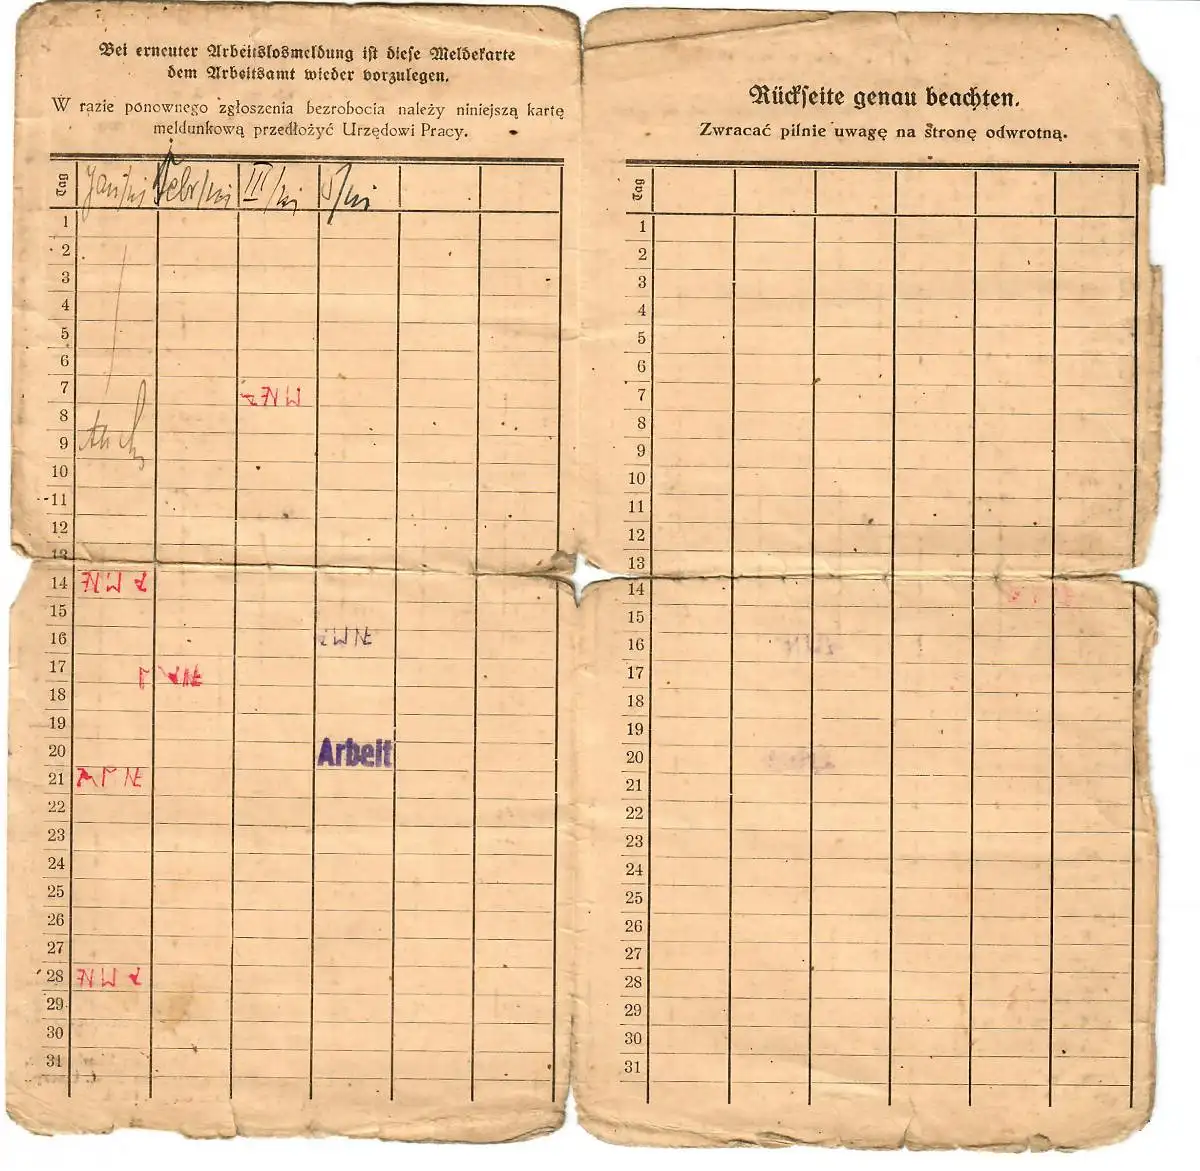 Bei erneuter Arbeitslosmeldung ist diese Meldekarte
dem Arbeitsamt wieder vorzulegen.
W razie ponownego zgłoszenia bezrobocia należy niniejszą kartę
meldunkową przedłożyć Urzędowi Pracy.
Tag
III
1
2
3
4
5
6
7
8
9
10
11
12
13
14
15
16
17
18
19
20 Arbeit
21
22
23
24
25
26
27
28
29
30
31
Rückseite genau beachten.
Zwracać pilnie uwagę na stronę odwrotną.
Tag
1
2
3
4
5
6
7
8
9
10
11
12
13
14
15
16
17
18
19
20
21
22
23
24
25
26
27
28
29
30
31